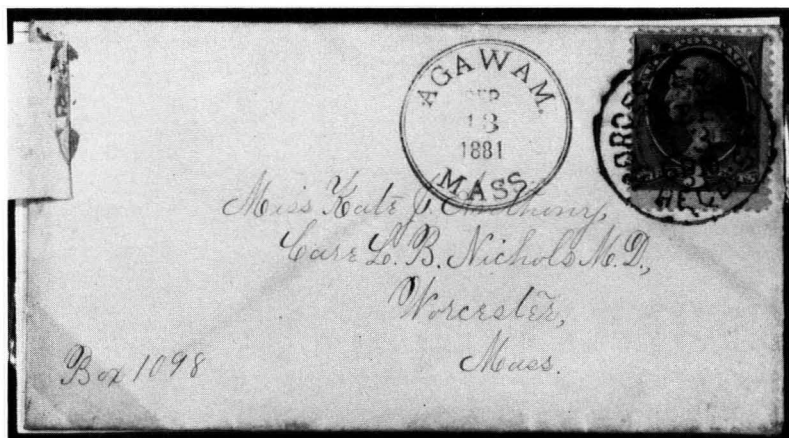 AGAWAM.
SEP
13
1881
MASS.
REC'D
Miss Kate J. Anthony,
Care L. B. Nichols M.D.,
Worcester,
Mass.
Box 1098